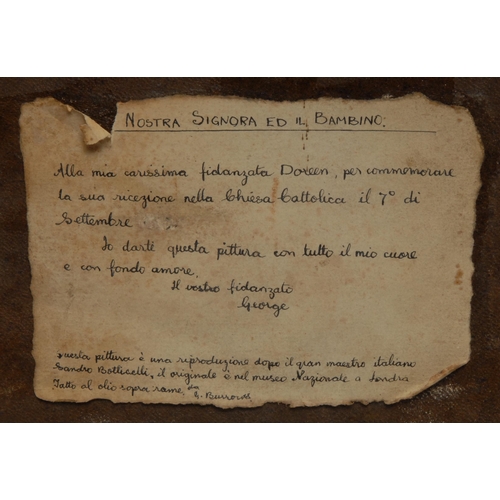 NOSTRA SIGNORA ED IL BAMBINO.
Alla mia carissima fidanzata Doreen, per commemorare
la sua ricezione nella Chiesa Cattolica il 7º di
Settembre
Io darte questa pittura con tutto il mio cuore
e con fondo amore.
Il vostro fidanzato
George
questa pittura è una riproduzione dopo il gran maestro italiano
Sandro Botticelli, il originale è nel museo Nazionale a Londra
Fatto al olio sopra rame, G. Burrows